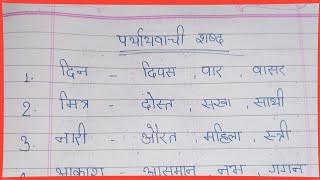 पर्यायवाची शब्द
1. दिन - दिवस, वार, वासर
2. मित्र - दोस्त, सखा, साथी
3. नारी - औरत, महिला, स्त्री
4. आकाश - आसमान, नभ, गगन